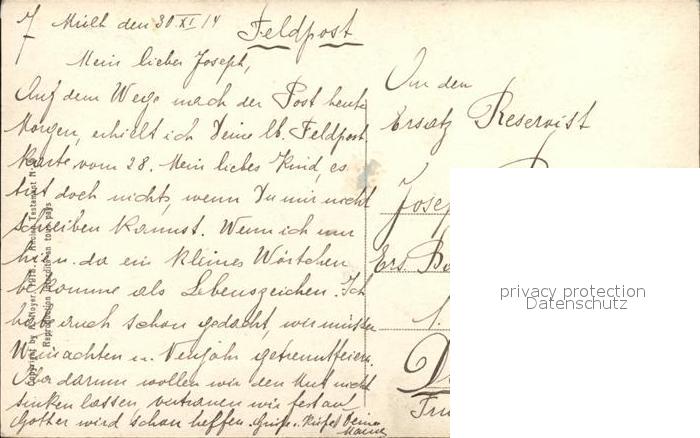 7 Mülh den 30 XI 14
Feldpost
Mein lieber Joseph,
Auf dem Wege nach der Post heute
Morgen, erhielt ich Deine lb. Feldpost
karte vom 28. Mein liebes Kind, es
tut doch nichts, wenn Du mir nicht
schreiben kannst. Wenn ich nur
hie u. da ein kleines Wörtchen
bekomme als Lebenszeichen. Ich
hab auch schon gedacht, wir müssen
Weinachten u. Neujahr getrennt feiern.
Aber darum wollen wir den Mut nicht
sinken lassen vertrauen wir fest auf
Gott er wird schon helfen. Grüße u. Küsse Deine
Mama
An den
Ersatz Reservist
Joseph
Ers. Ba
1.
privacy protection
Datenschutz
Reproduction interdite en tous pays